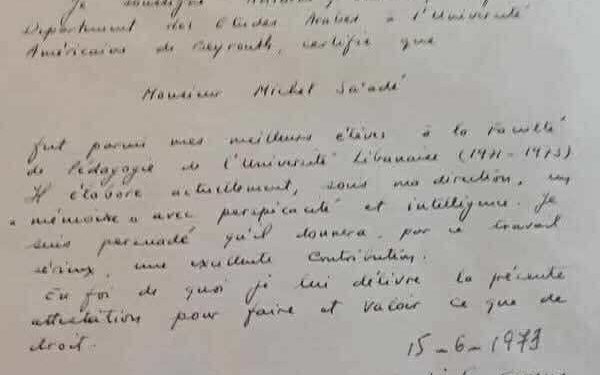 Je soussigné
Département des Etudes Arabes à l'Université
Américaine de Beyrouth, certifie que
Monsieur Michel Sa'adé
fut parmi mes meilleurs élèves à la Faculté
de Pédagogie de l'Université Libanaise (1971-1973)
Il élabore actuellement, sous ma direction, un
« mémoire » avec perspicacité et intelligence. Je
suis persuadé qu'il donnera, par ce travail
sérieux, une excellente contribution.
En foi de quoi je lui délivre la présente
attestation pour faire et valoir ce que de
droit.
15-6-1973